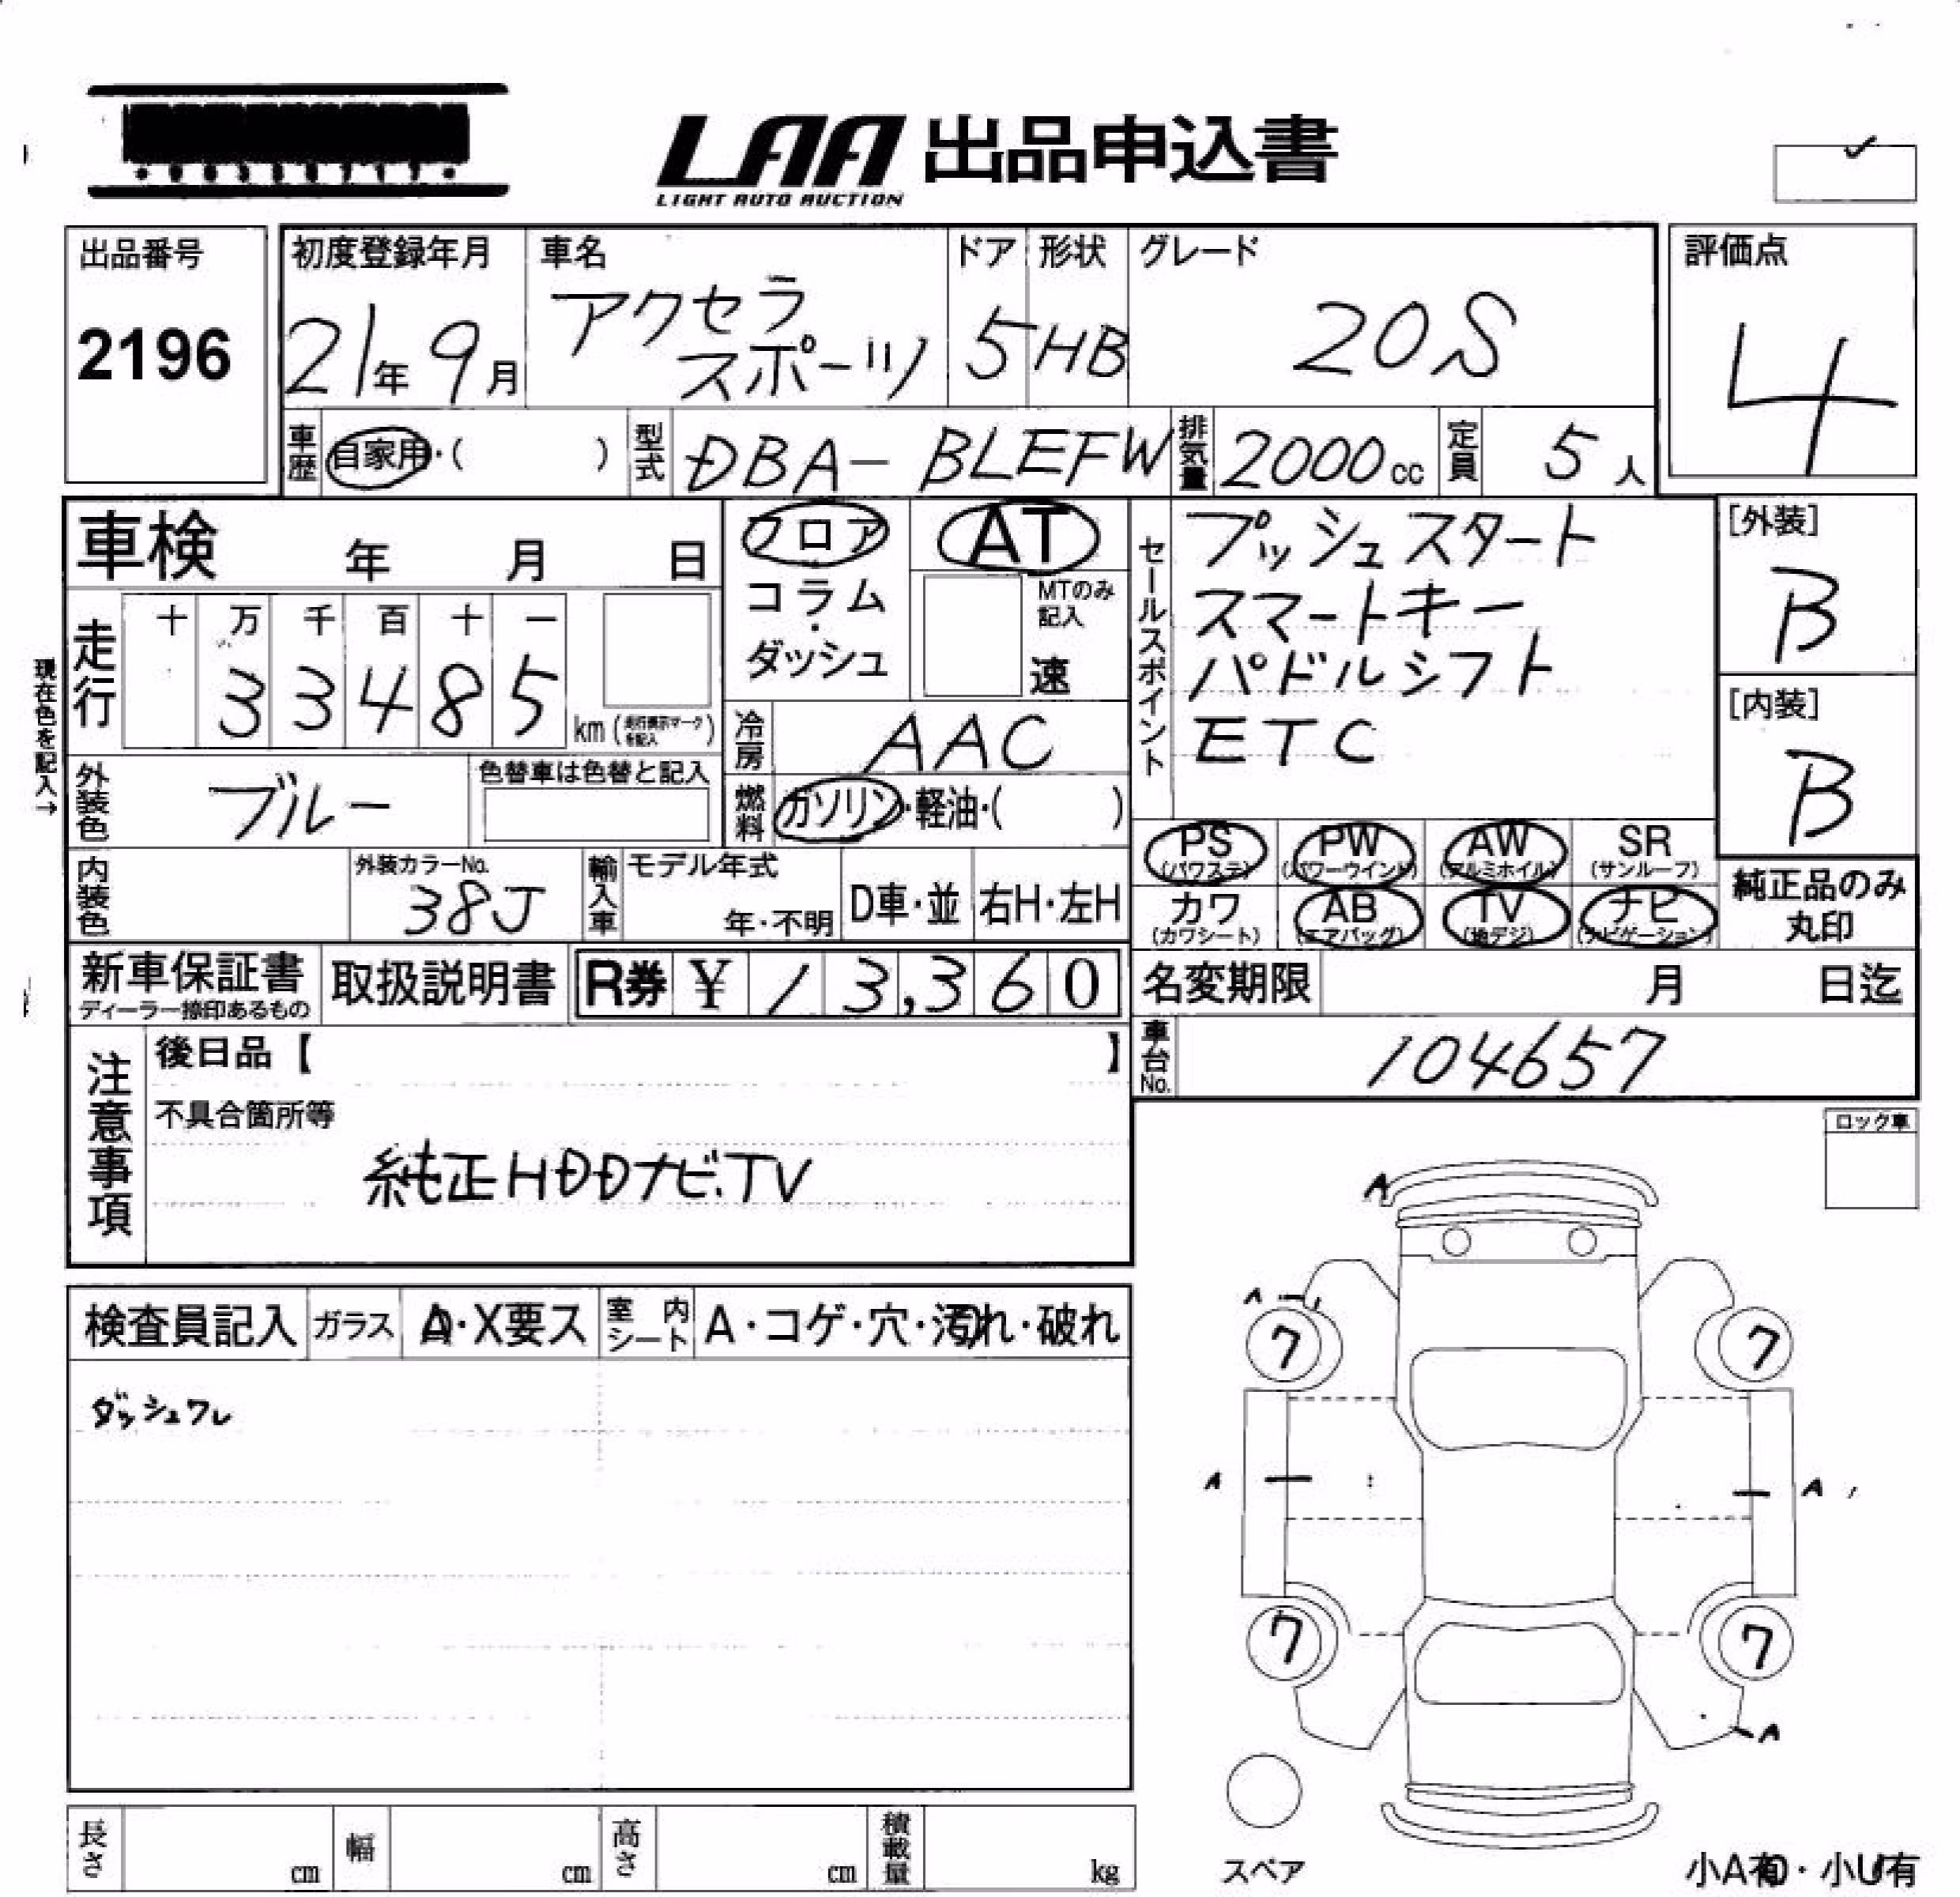 LAA 出品申込書
LIGHT AUTO AUCTION
出品番号
2196
初度登録年月
21年9月
車名
アクセラ
スポーツ
ドア
5
形状
HB
グレード
20S
評価点
4
車歴 自家用・( )
型式 DBA-BLEFW
排気量 2000cc
定員 5人
車検 年 月 日
フロア
コラム
・
ダッシュ
AT
MTのみ
記入
速
セールスポイント
プッシュスタート
スマートキー
パドルシフト
ETC
[外装]
B
[内装]
B
現在色を記入→
走行
十 万 千 百 十 一
3 3 4 8 5
km (走行表示マークを記入)
冷房 AAC
外装色 ブルー
色替車は色替と記入
燃料 ガソリン・軽油・( )
PS (パワステ)
PW (パワーウインド)
AW (アルミホイル)
SR (サンルーフ)
カワ (カワシート)
AB (エアバッグ)
TV (地デジ)
ナビ (ナビゲーション)
純正品のみ
丸印
内装色
外装カラーNo.
38J
輸入車
モデル年式
年・不明
D車・並
右H・左H
新車保証書
ディーラー捺印あるもの
取扱説明書
R券 ¥ 13,360
名変期限 月 日迄
車台No. 104657
注意事項
後日品【 】
不具合箇所等
純正HDDナビ.TV
ロック車
検査員記入 ガラス A・X要ス 室内シート A・コゲ・穴・汚れ・破れ
ダッシュワレ
A
A
7
7
A
A
7
7
A
スペア
長さ cm
幅 cm
高さ cm
積載量 kg
小A有・小U有